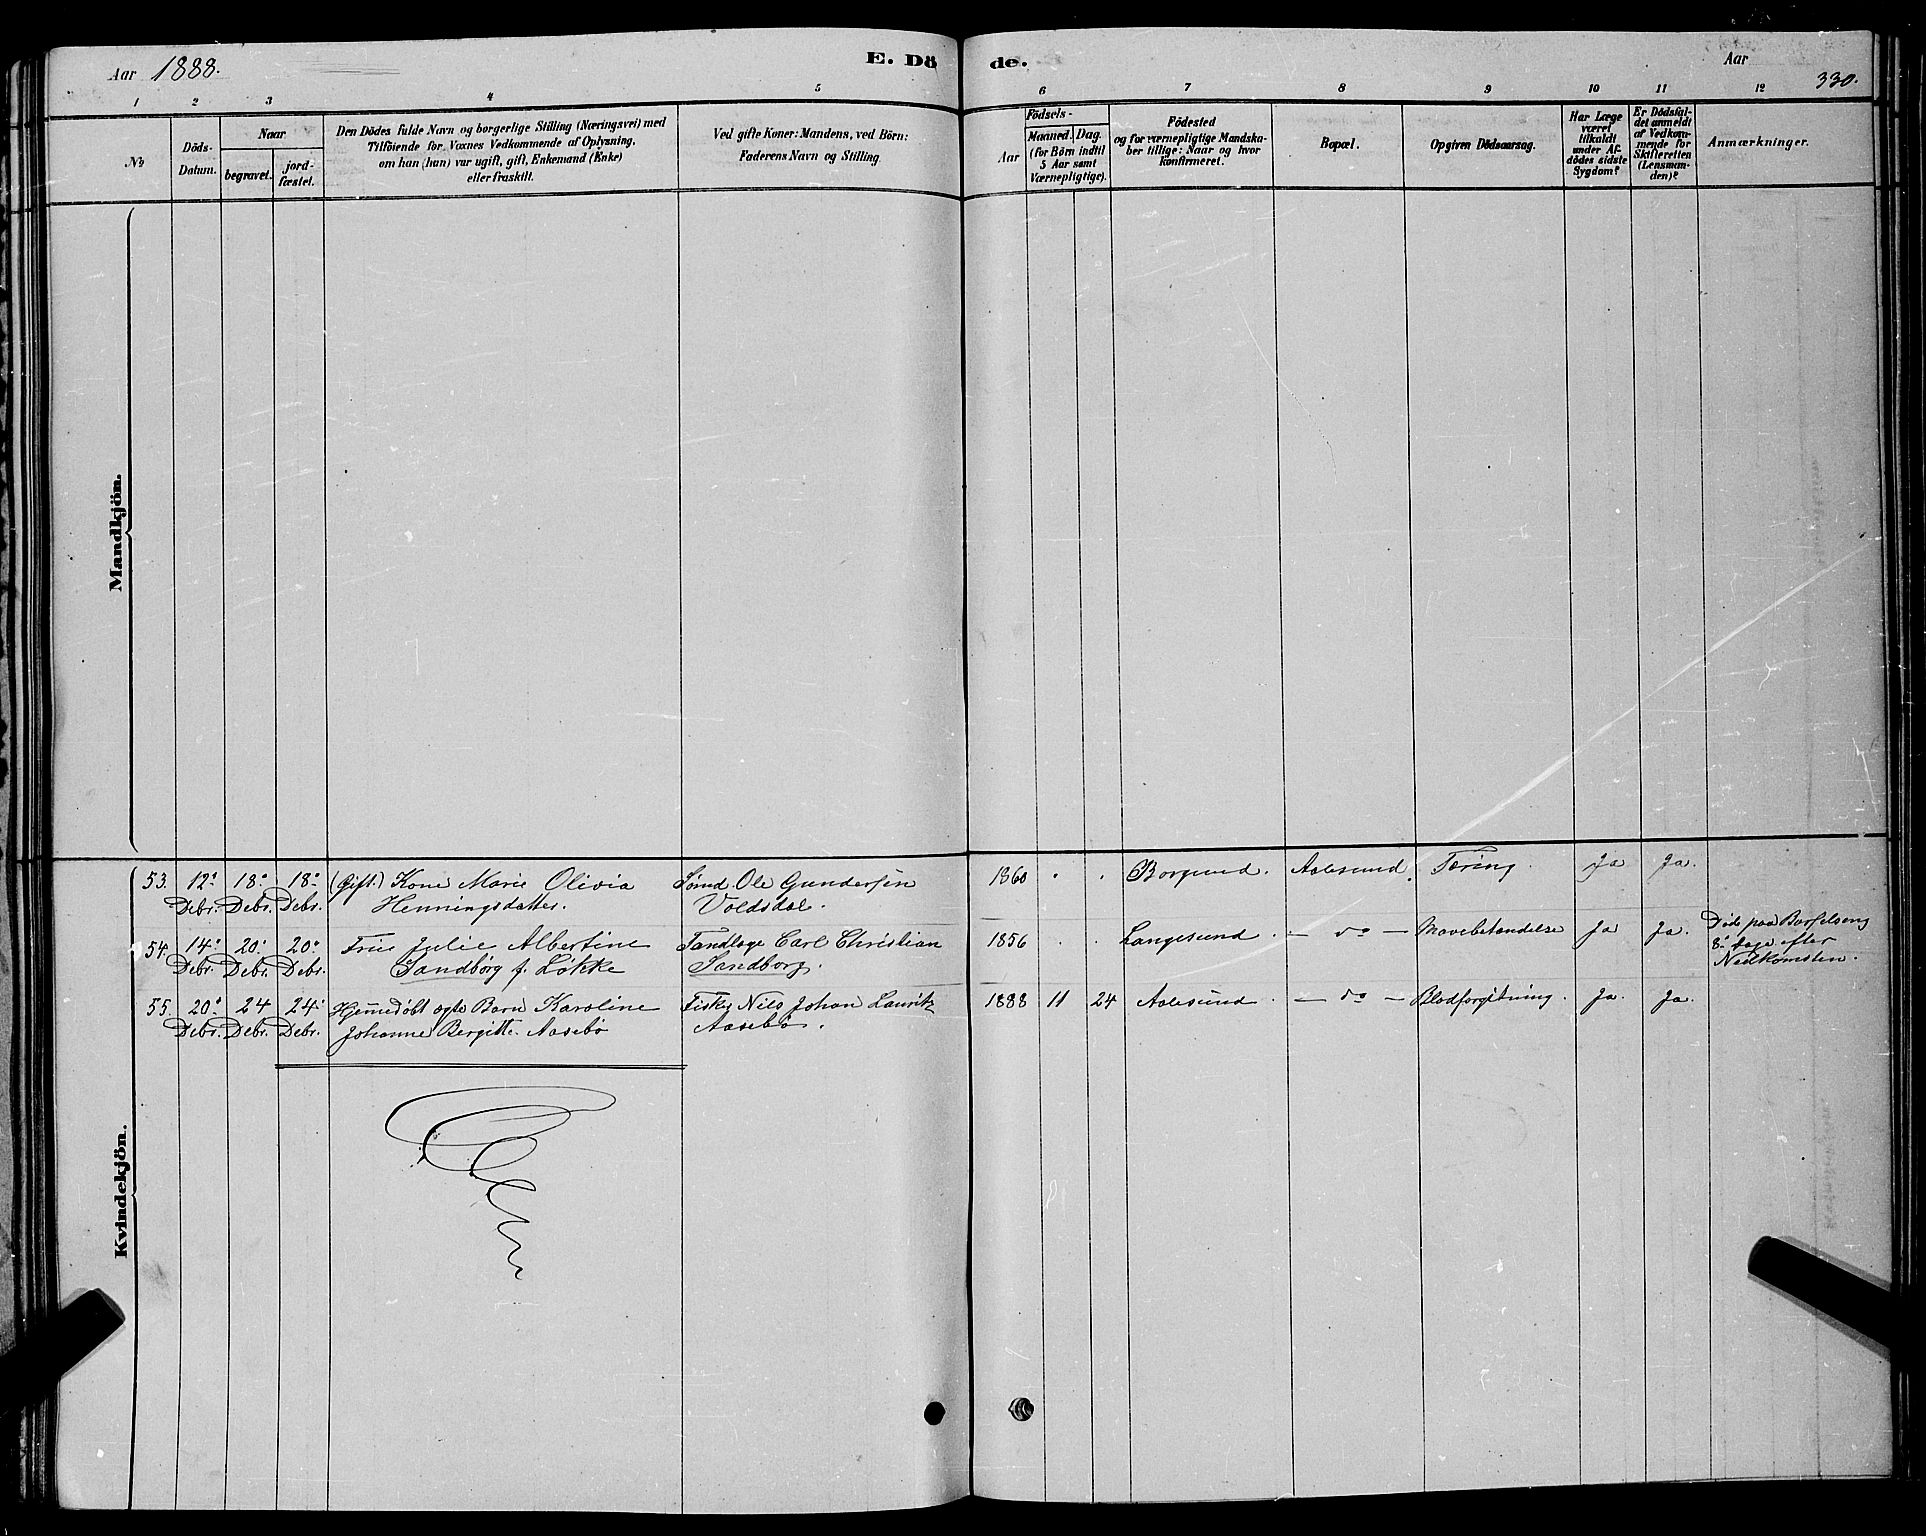 Aar 1888.
E. Dö de.
Aar
330.
1 2 3 4 5 6 7 8 9 10 11 12
No
Döds-
Datum.
Naar
begravet.
jord-
fæstet.
Den Dödes fulde Navn og borgerlige Stilling (Næringsvei) med
Tilföiende for Voxnes Vedkommende af Oplysning,
om han (hun) var ugift, gift, Enkemand (Enke)
eller fraskilt.
Ved gifte Koner: Mandens, ved Börn:
Faderens Navn og Stilling.
Födsels-
Aar
Maaned. Dag.
(for Börn indtil
5 Aar samt
Værnepligtige).
Födested
og for værnepligtige Mandska-
ber tillige: Naar og hvor
konfirmeret.
Bopæl.
Opgiven Dödsaarsag.
Har Læge
været
tilkaldt
under Af-
dödes sidste
Sygdom?
Er Dödsfal-
det anmeldt
af Vedkom-
mende for
Skifteretten
(Lensman-
den)?
Anmærkninger.
Mandkjön.
Kvindekjön.
53. 12. 18. 18. (Gift.) Kone Marie Olivia Sömd. Ole Gundersen 1860 . . Borgund. Aalesund. Tæring. Ja Ja.
Debr. Debr. Debr. Henningsdatter. Voldsdal.
54. 14. 20. 20. Frue Julie Albertine Tandlæge Carl Christian 1856 . . Langesund. — do — Mavebetændelse Ja Ja. Døde paa Barselseng
Debr. Debr. Debr. Sandborg f. Løkke Sandborg. 8 dage efter
Nedkomsten.
55. 20. 24 24. Hjemedøbt ægte Barn Karoline Fisker Nils Johan Lauritz 1888 11 24 Aalesund. — do — Blodforgiftning. Ja. Ja.
Debr. Debr. Debr. Johanne Bergitte Aasebø Aasebø.